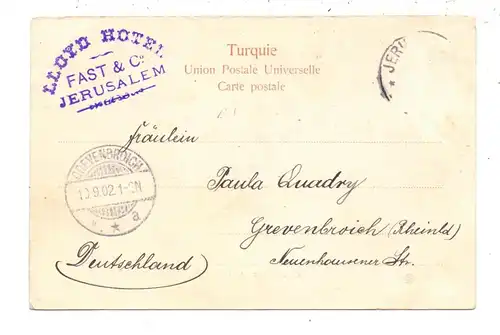 LLOYD HOTEL
FAST & Co
JERUSALEM
Turquie
Union Postale Universelle
Carte postale
JERU
Fräulein
GREVENBROICH
10.9.02.1-2N
* a
Paula Quadry
Grevenbroich (Rheinld)
Neuenhausener Str.
Deutschland